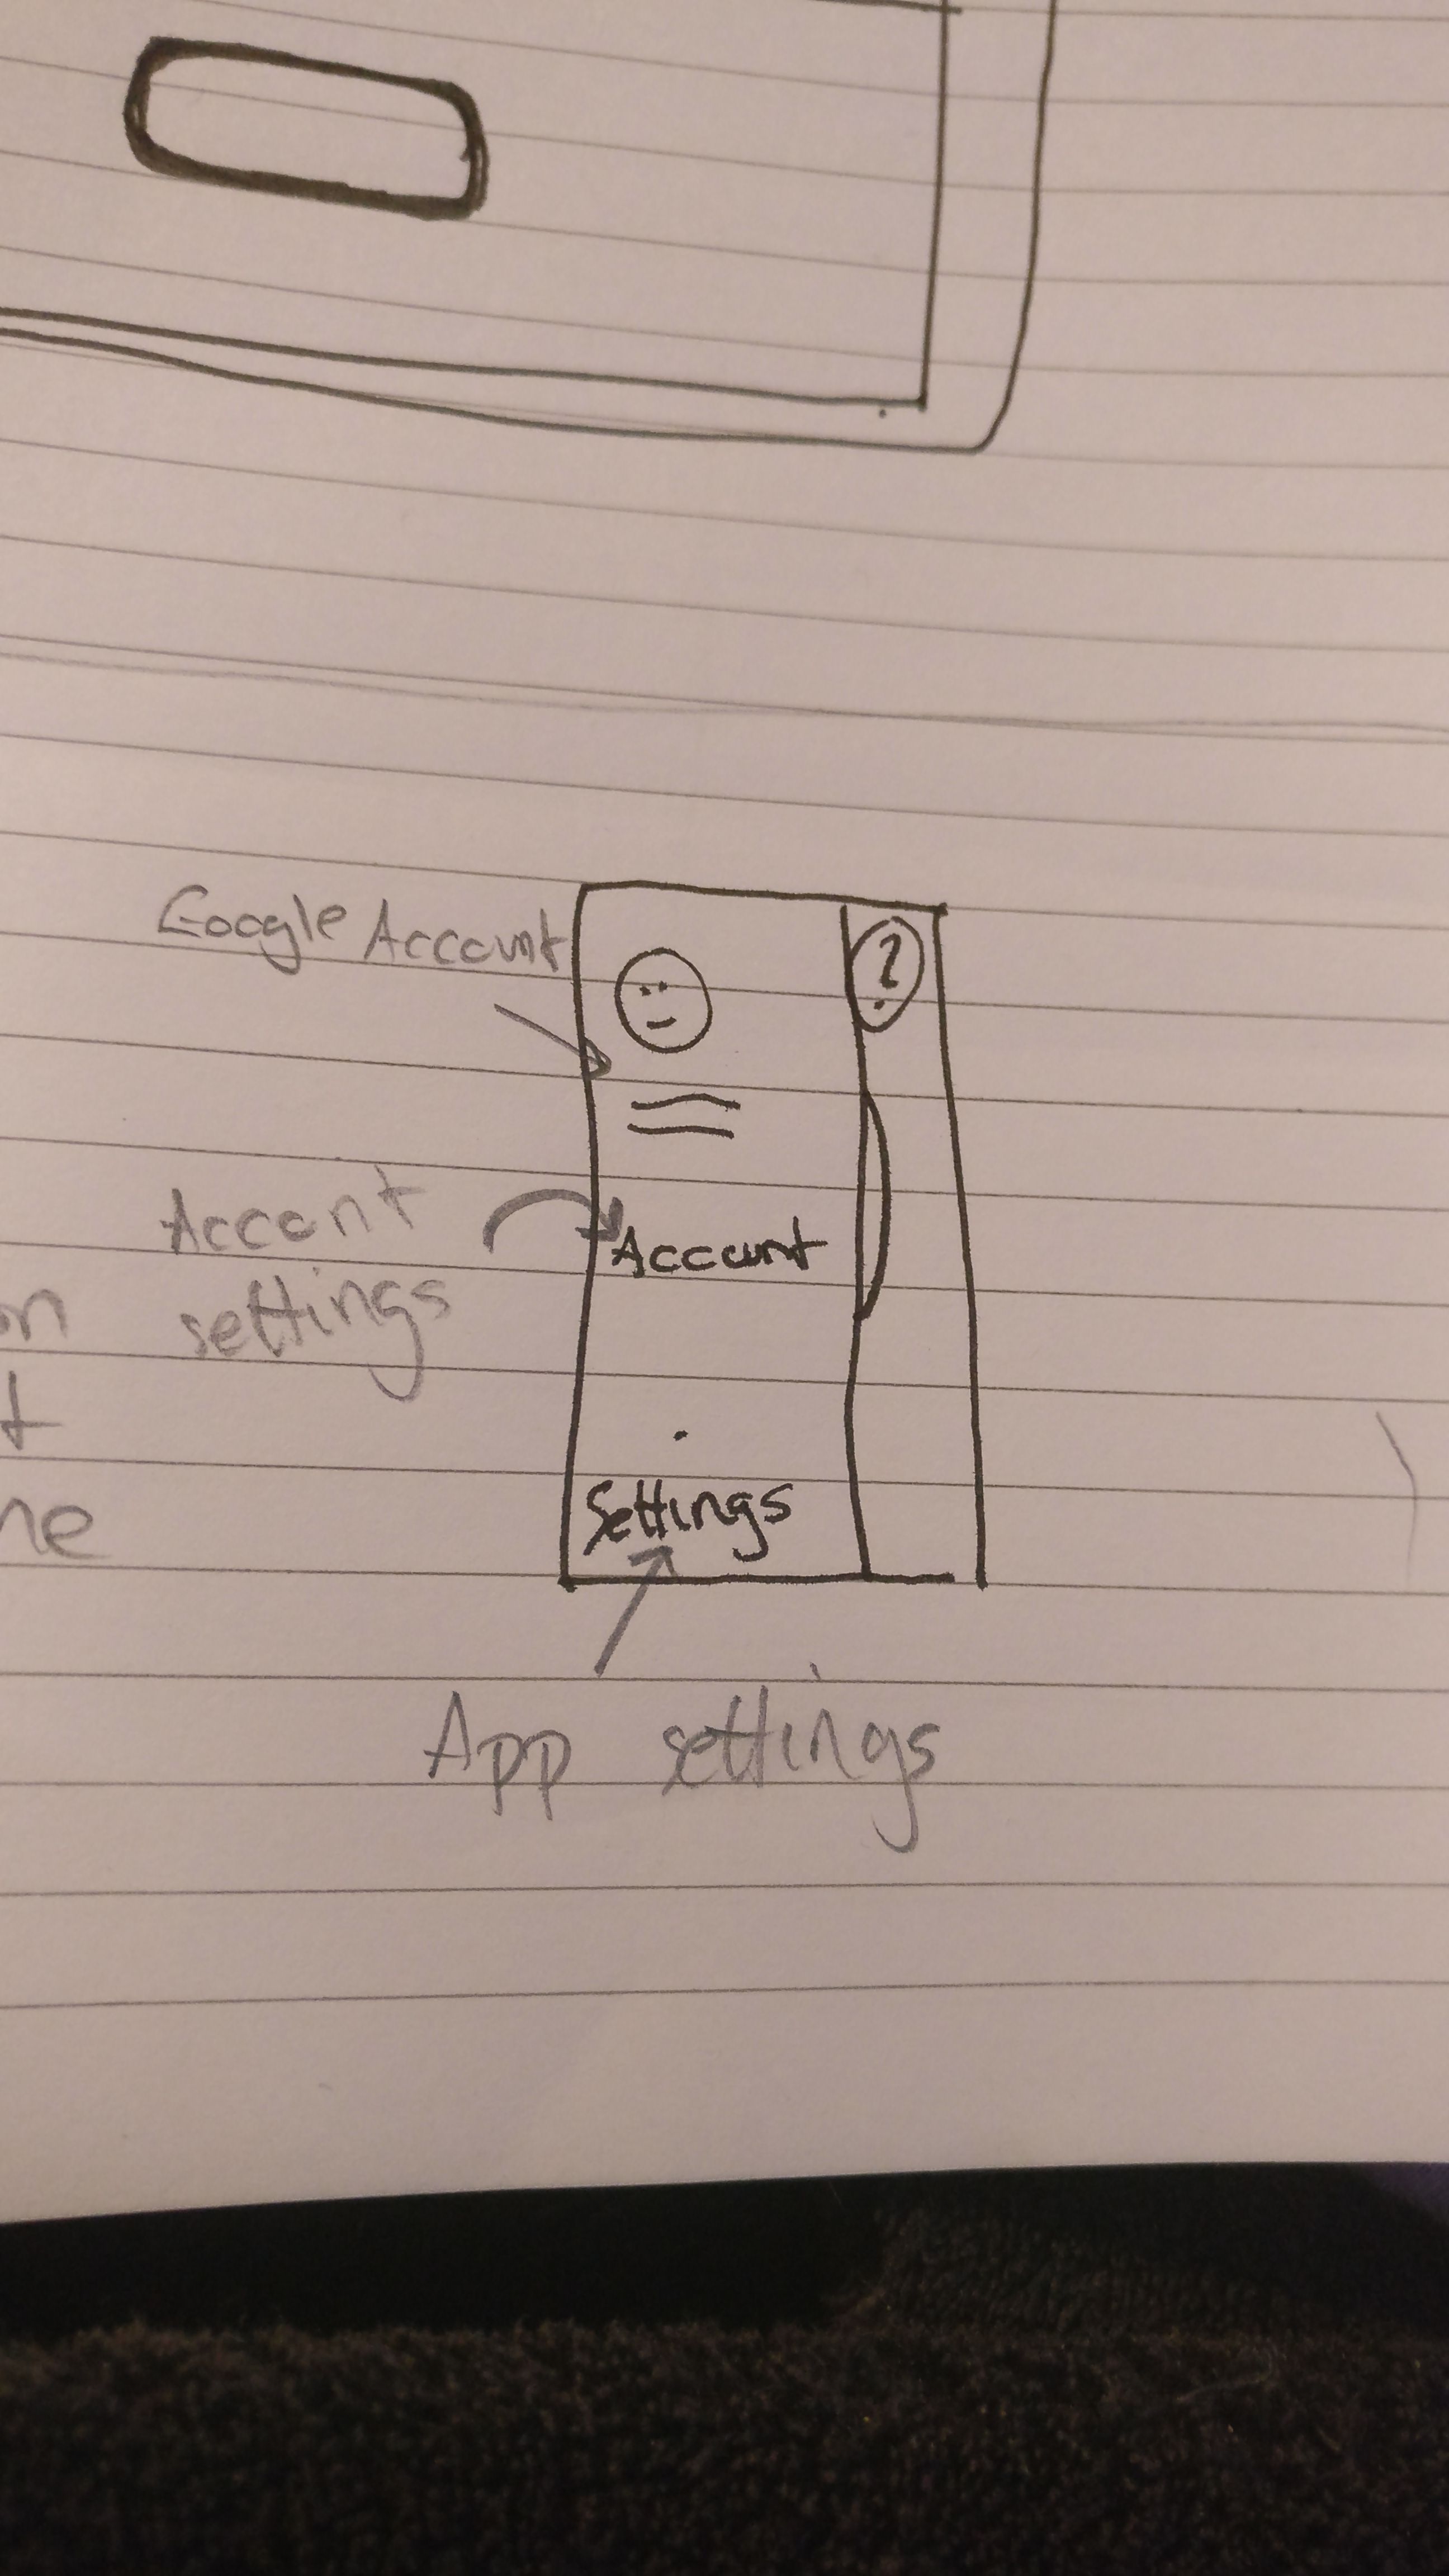 Google Account
?
Accont
settings
Account
on
t
ne
Settings
App settings